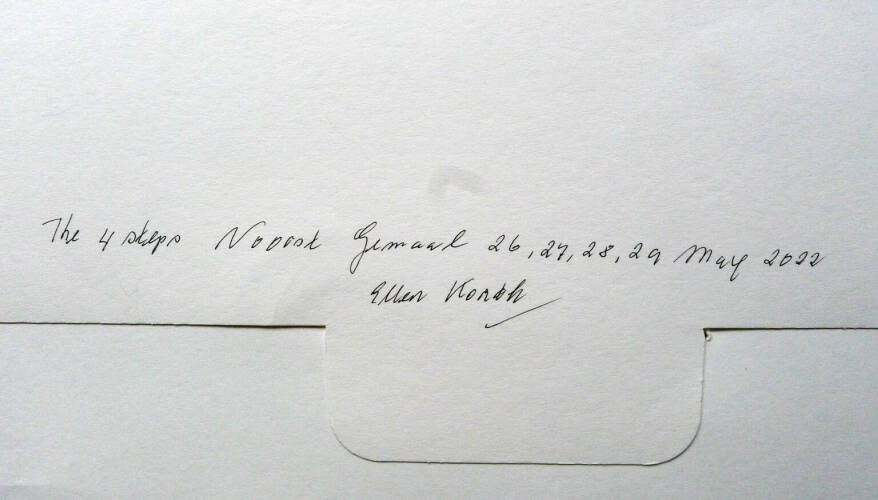 The 4 steps Nooost Gemaal 26, 27, 28, 29 May 2022
Ellen